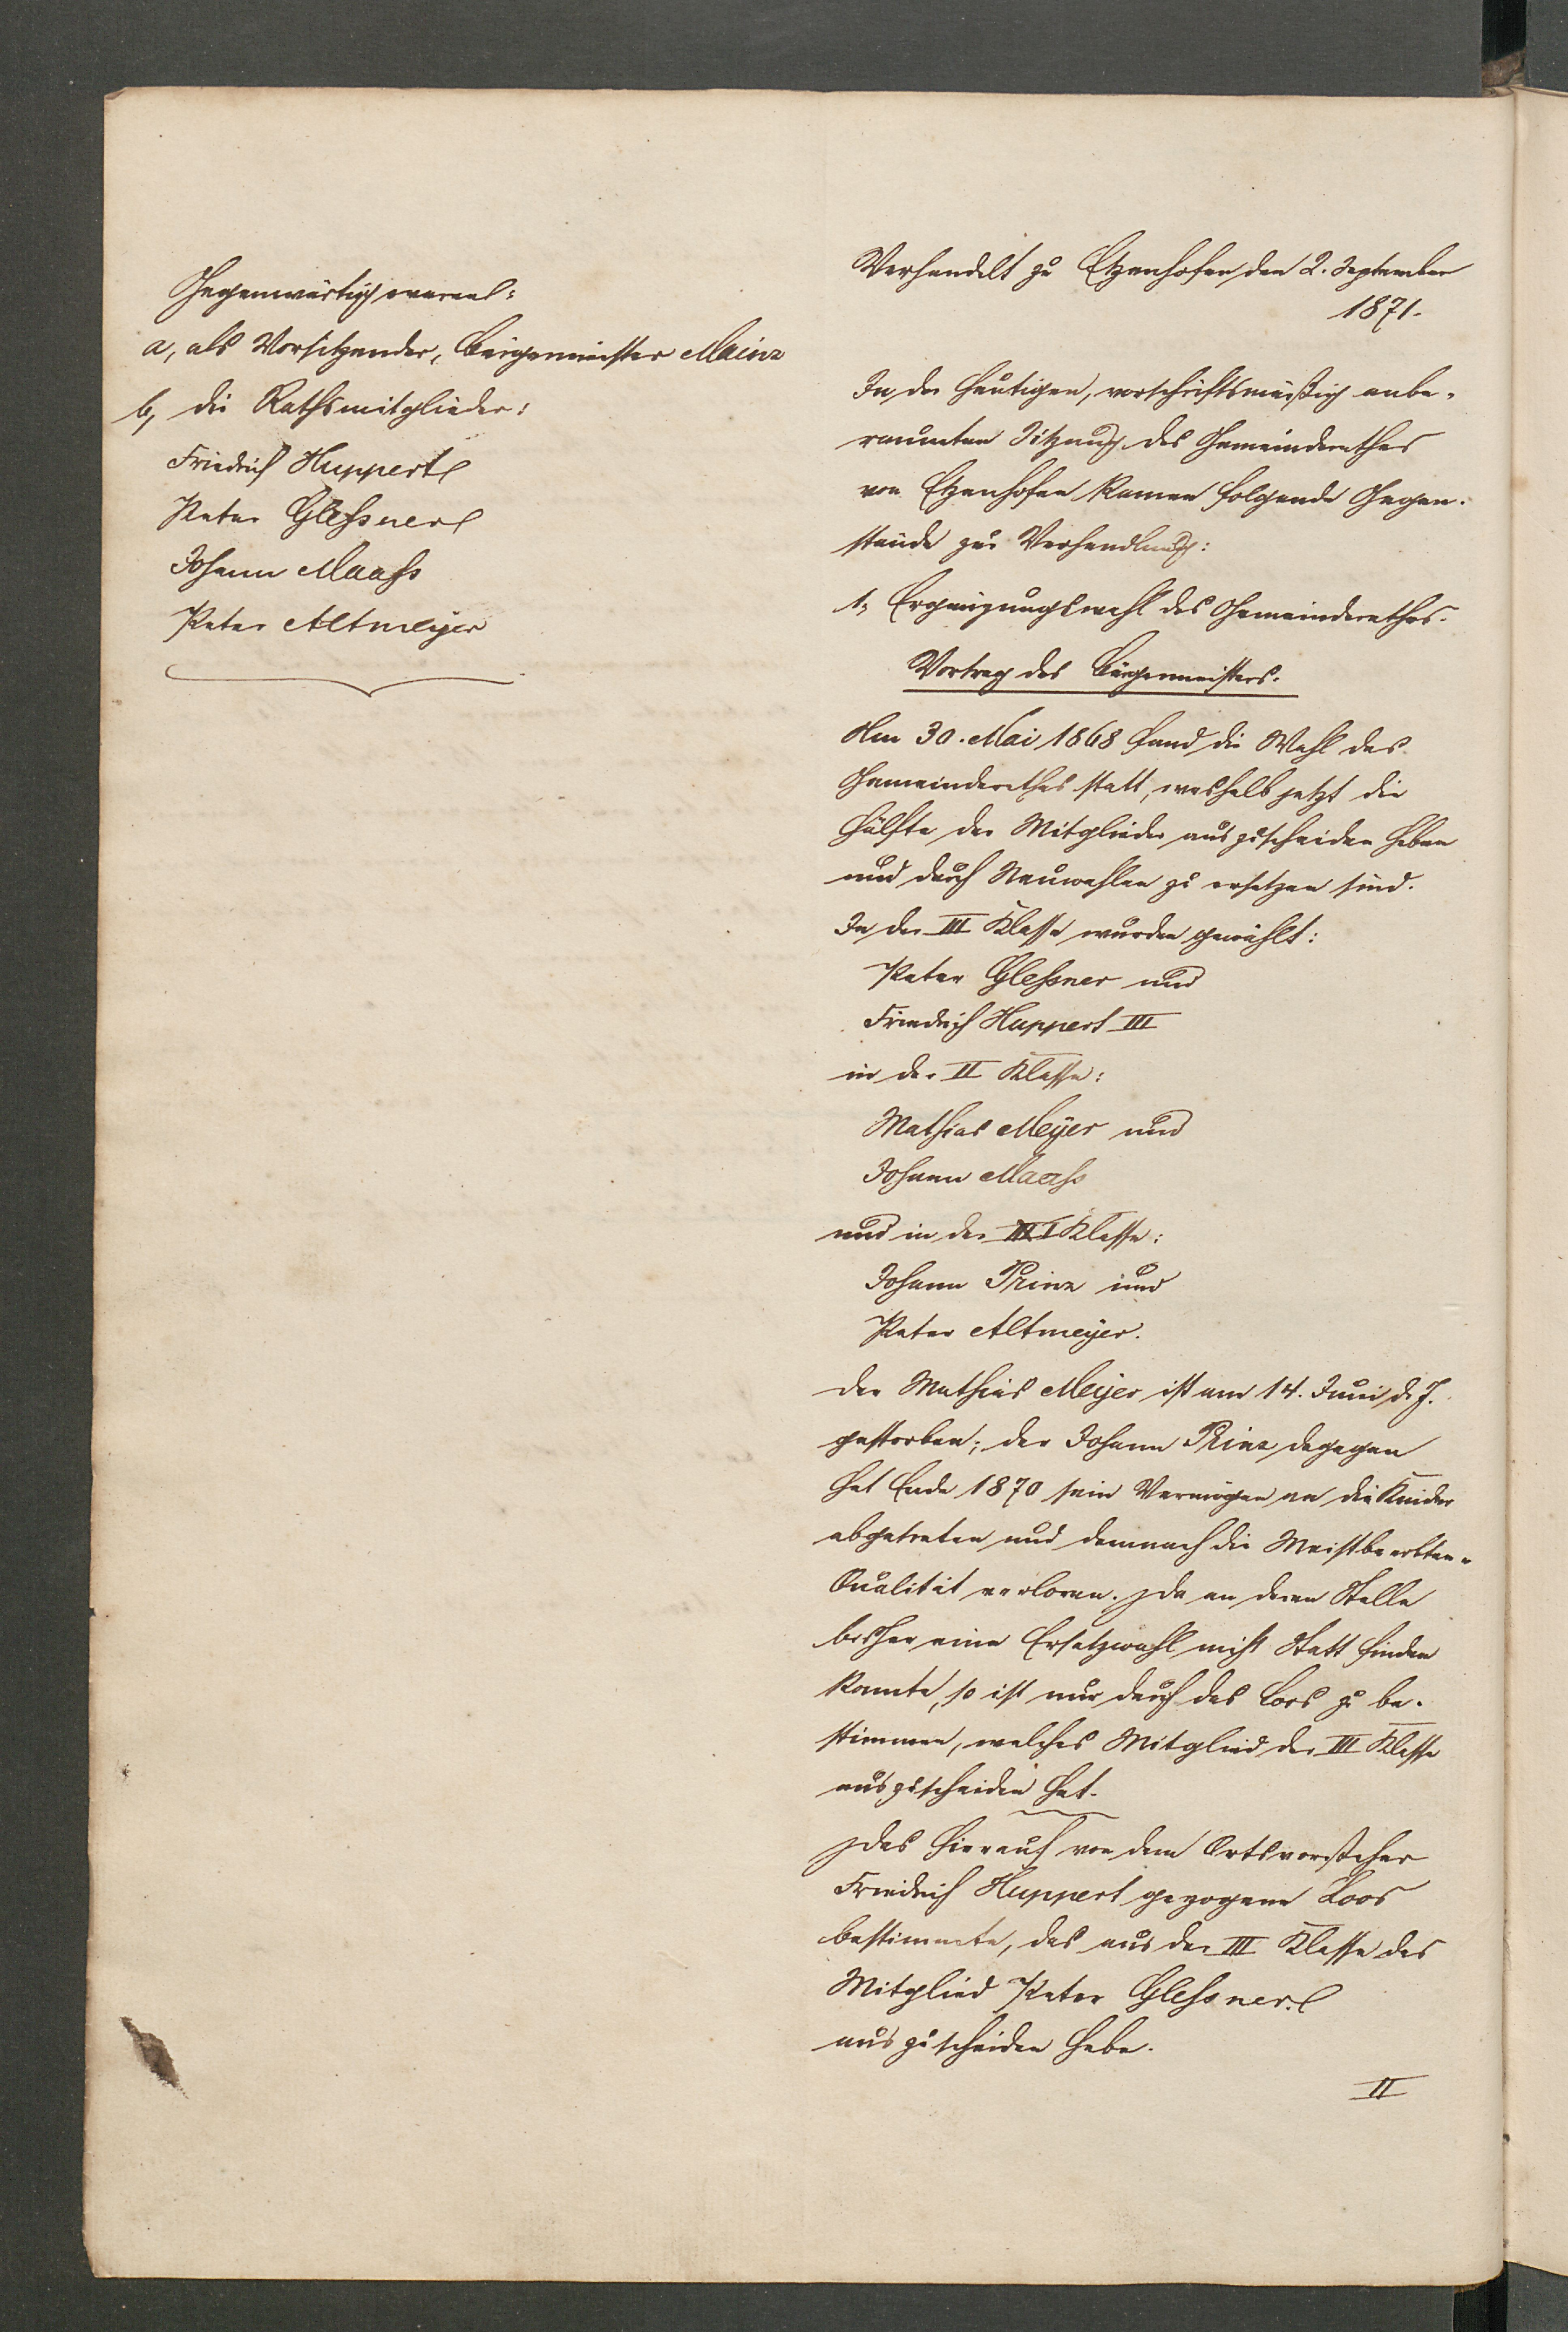 Gegenwärtig waren:
a, als Vorsitzender, Bürgermeister Mainz
b, die Rathsmitglieder:
Friedrich Huppert
Peter Glessner
Johann Maass
Peter Altmeyer
Verhandelt zu Etzenhofen den 2. September
1871.
In der heutigen, vorschriftsmäßig anbe-
raumten Sitzung des Gemeinderathes
von Etzenhofen kamen folgende Gegen-
stände zur Verhandlung:
1, Ergänzungswahl des Gemeinderathes.
Vortrag des Bürgermeisters.
Am 30. Mai 1868 fand die Wahl des
Gemeinderathes statt, weshalb jetzt die
Hälfte der Mitglieder auszuscheiden haben
und durch Neuwahlen zu ersetzen sind.
In der III Klasse wurden gewählt:
Peter Glessner und
Friedrich Huppert III
in der II Klasse:
Mathias Meyer und
Johann Maass
und in der I Klasse:
Johann Prinz und
Peter Altmeyer.
Der Mathias Meyer ist am 14. Juni d. J.
gestorben; der Johann Prinz dagegen
hat Ende 1870 sein Vermögen an die Kinder
abgetreten und demnach die Meistbeerbten-
Qualität verloren. Da an deren Stelle
bisher eine Ersatzwahl nicht Statt finden
konnte, so ist nur durch das Loos zu be-
stimmen, welches Mitglied der III Klasse
auszuscheiden hat.
Das hierauf von dem Ortsvorsteher
Friedrich Huppert gezogene Loos
bestimmte, das aus der III Klasse das
Mitglied Peter Glessner
auszuscheiden habe.
II